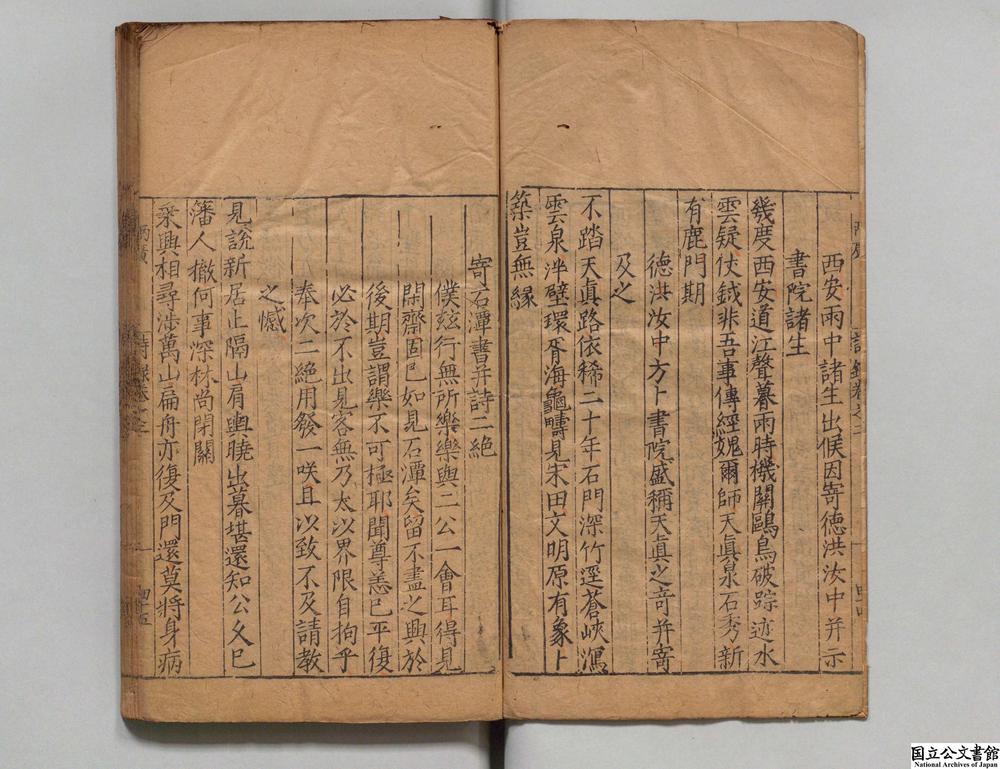 西安雨中諸生出候因寄德洪汝中并示
書院諸生
幾度西安道江聲暮雨時機關鷗鳥破踪迹水
雲疑仗鉞非吾事傳經媿爾師天眞泉石秀新
有鹿門期
德洪汝中方卜書院盛稱天眞之奇并寄
及之
不踏天眞路依稀二十年石門深竹逕蒼峽瀉
雲泉泮壁環胥海龜疇見宋田文明原有象卜
築豈無緣
寄石潭書并詩二絶
僕玆行無所樂樂與二公一會耳得見
閑齋固已如見石潭矣留不盡之興於
後期豈謂樂不可極耶聞尊恙已平復
必於不出見客無乃太以界限自拘乎
奉次二絶用發一咲且以致不及請教
之憾
見說新居止隔山肩輿曉出暮堪還知公久已
藩人撤何事深林尚閉關
乘興相尋涉萬山扁舟亦復及門還莫將身病
四十五
国立公文書館
National Archives of Japan